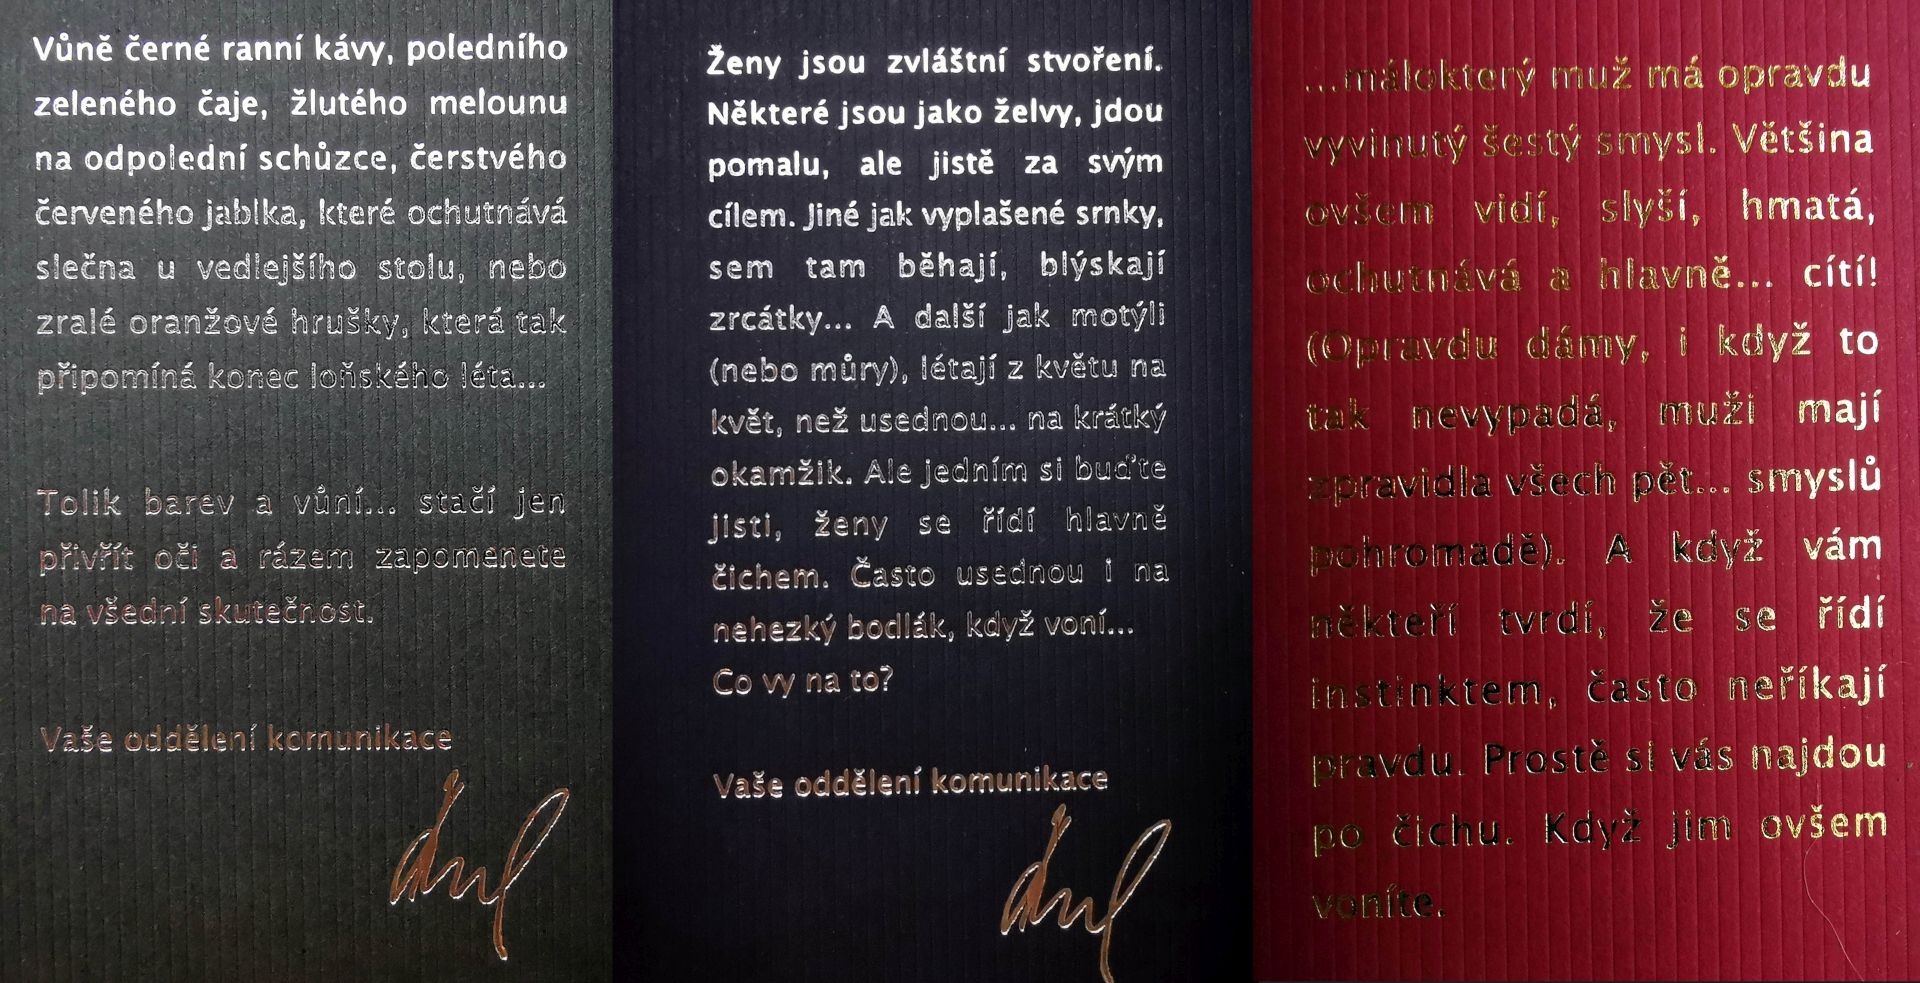 Vůně černé ranní kávy, poledního
zeleného čaje, žlutého melounu
na odpolední schůzce, čerstvého
červeného jablka, které ochutnává
slečna u vedlejšího stolu, nebo
zralé oranžové hrušky, která tak
připomíná konec loňského léta...
Tolik barev a vůní... stačí jen
přivřít oči a rázem zapomenete
na všední skutečnost.
Vaše oddělení komunikace
Ženy jsou zvláštní stvoření.
Některé jsou jako želvy, jdou
pomalu, ale jistě za svým
cílem. Jiné jak vyplašené srnky,
sem tam běhají, blýskají
zrcátky... A další jak motýli
(nebo můry), létají z květu na
květ, než usednou... na krátký
okamžik. Ale jedním si buďte
jisti, ženy se řídí hlavně
čichem. Často usednou i na
nehezký bodlák, když voní...
Co vy na to?
Vaše oddělení komunikace
...málokterý muž má opravdu
vyvinutý šestý smysl. Většina
ovšem vidí, slyší, hmatá,
ochutnává a hlavně... cítí!
(Opravdu dámy, i když to
tak nevypadá, muži mají
zpravidla všech pět... smyslů
pohromadě). A když vám
někteří tvrdí, že se řídí
instinktem, často neříkají
pravdu. Prostě si vás najdou
po čichu. Když jim ovšem
voníte.